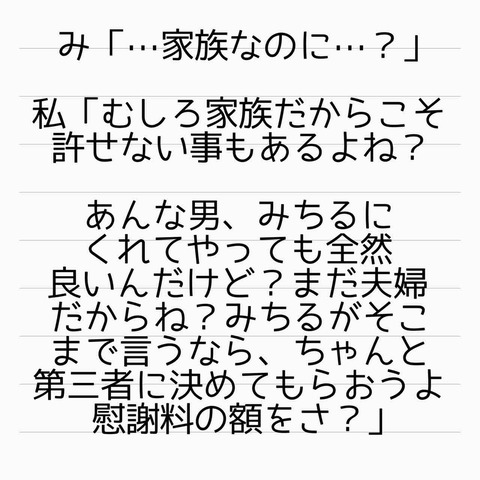 み「…家族なのに…？」
私「むしろ家族だからこそ
許せない事もあるよね？
あんな男、みちるに
くれてやっても全然
良いんだけど？まだ夫婦
だからね？みちるがそこ
まで言うなら、ちゃんと
第三者に決めてもらおうよ
慰謝料の額をさ？」